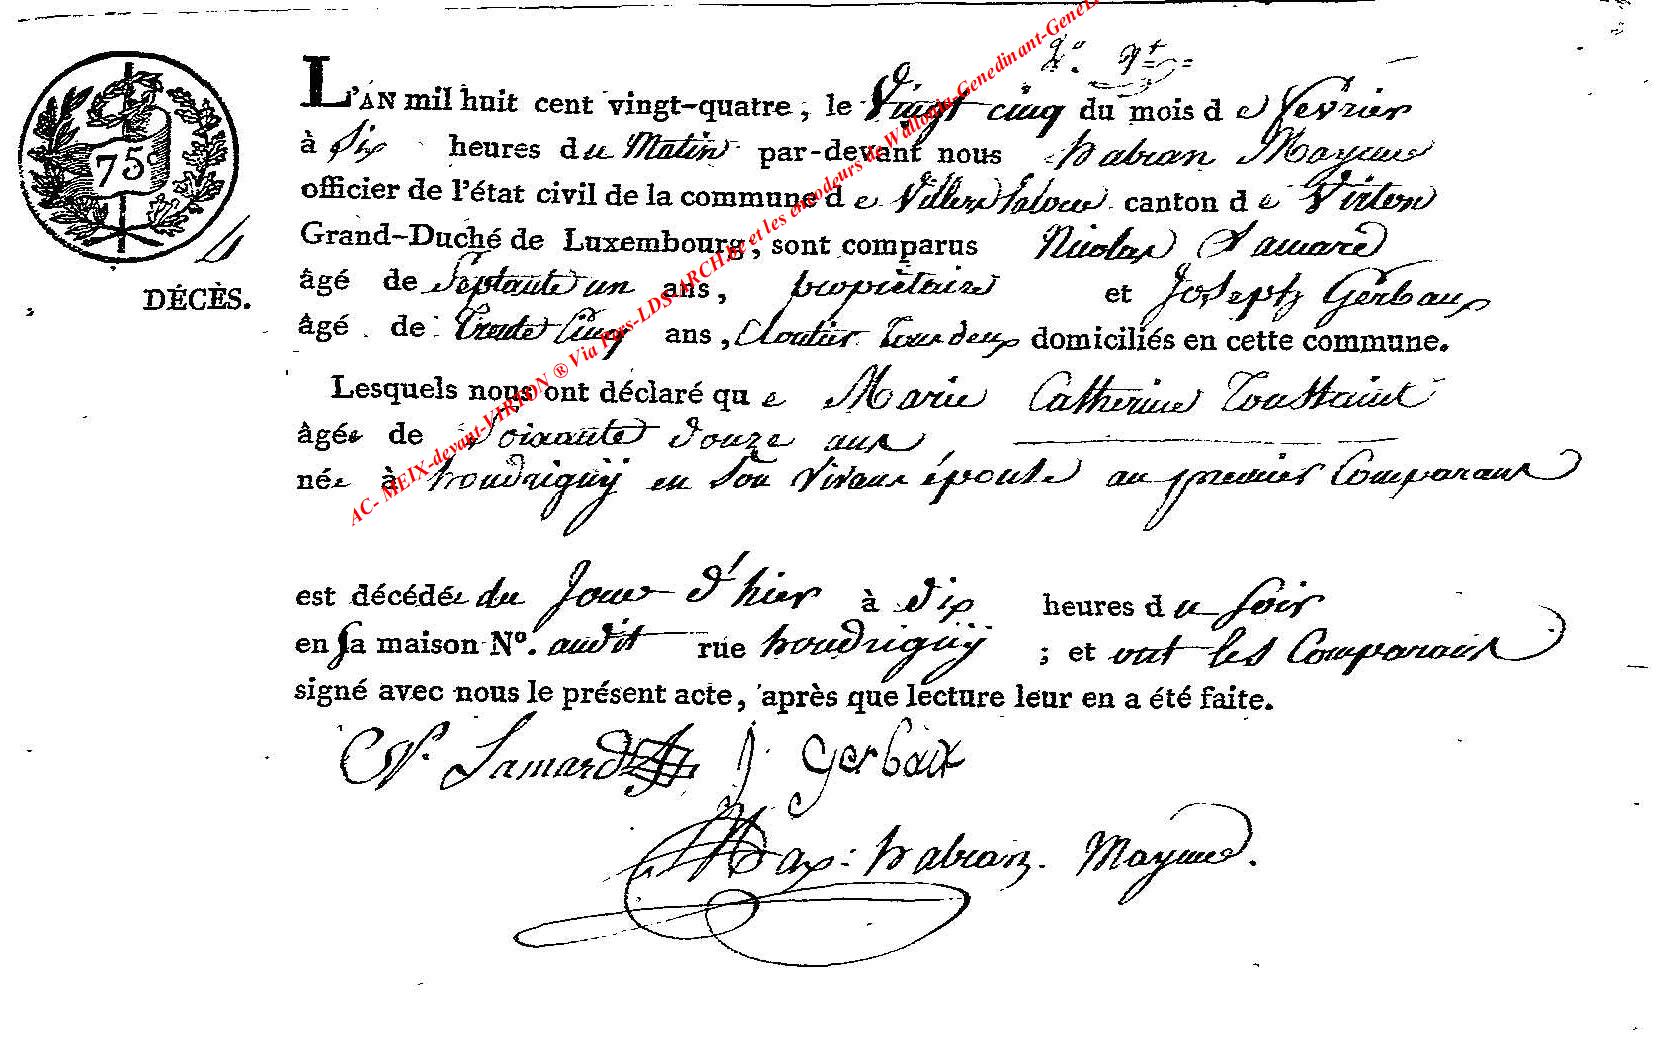 2º. 9t
L'AN mil huit cent vingt-quatre, le Vingt cinq du mois de fevrier
à Six heures du Matin par-devant nous habran Mayeur
officier de l'état civil de la commune de Villers Laloue canton de Virton
Grand-Duché de Luxembourg, sont comparus Nicolas Lamard
75c
DÉCÈS.
âgé de Septante un ans, propriétaire et Joseph Gerbaux
âgé de trente Cinq ans, Cloutier Tous deux domiciliés en cette commune.
Lesquels nous ont déclaré que Marie Catherine Toustaint
âgée de Soixante douze ans
née à houdrigny en Son Vivant épouse au premier Comparant
est décédée du Jour d'hier à dix heures du Soir
en sa maison Nº. audit rue houdrigny ; et ont les Comparans
signé avec nous le présent acte, après que lecture leur en a été faite.
N. Lamard J. Gerbaux
Max: habran. Mayeur.
AC- MEIX-devant-VIRTON ® Via Pays-LDS-ARCH.be et les encodeurs de Wallonia-Genedinant-Genel